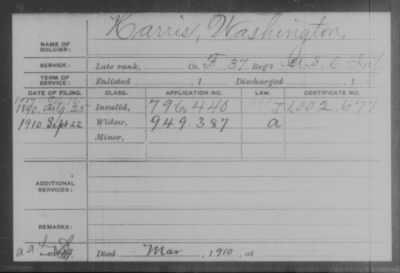 Harris, Washington,
NAME OF SOLDIER:
SERVICE: Late rank, Co. F, 37 Reg't U.S.C. Inf.
TERM OF SERVICE: Enlisted , 1 Discharged , 1
DATE OF FILING. CLASS. APPLICATION NO. LAW. CERTIFICATE NO.
1890. Aug 25 Invalid, 796.446 1,002.677
1910 Sept 22 Widow, 949.387 a
Minor,
ADDITIONAL SERVICES:
REMARKS:
Died Mar , 1910, at